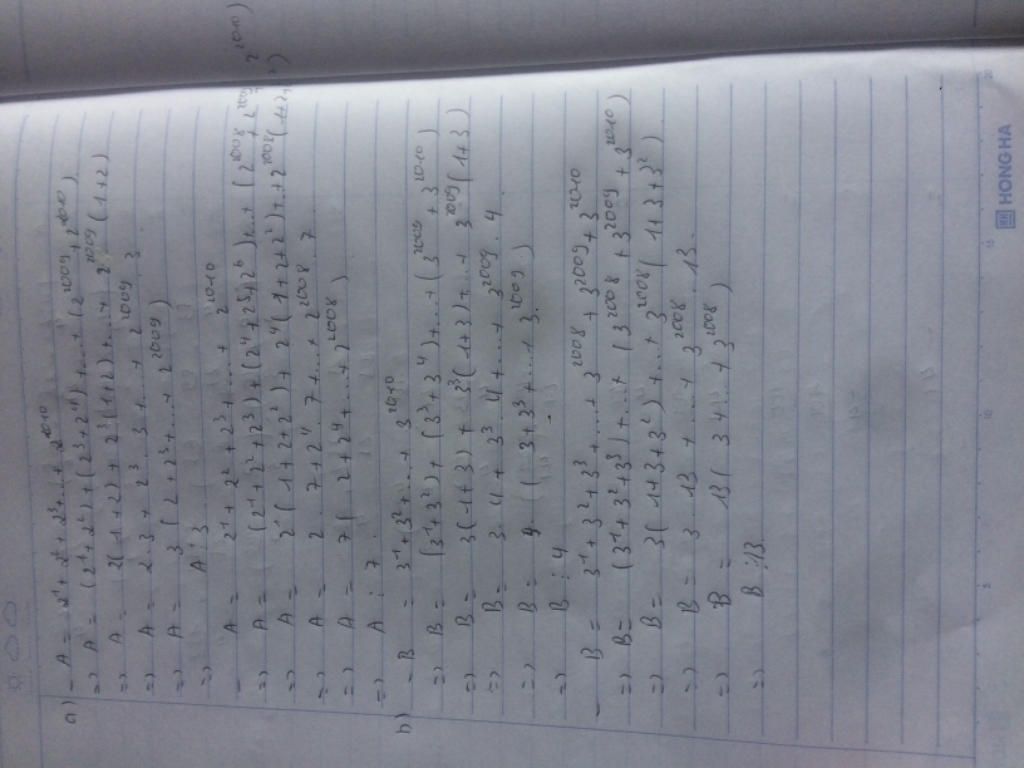 a) - A = 2¹ + 2² + 2³ + ... + 2²⁰¹⁰
=> A = (2¹ + 2²) + (2³ + 2⁴) + ... + (2²⁰⁰⁹ + 2²⁰¹⁰)
=> A = 2(1+2) + 2³(1+2) + ... + 2²⁰⁰⁹(1+2)
=> A = 2.3 + 2³.3 + ... + 2²⁰⁰⁹.3
=> A = 3(2 + 2³ + ... + 2²⁰⁰⁹)
=> A ⋮ 3
- A = 2¹ + 2² + 2³ + ... + 2²⁰¹⁰
=> A = (2¹ + 2² + 2³) + (2⁴ + 2⁵ + 2⁶) + ... + (2²⁰⁰⁸ + 2²⁰⁰⁹ + 2²⁰¹⁰)
=> A = 2¹(1 + 2 + 2²) + 2⁴(1 + 2 + 2²) + ... + 2²⁰⁰⁸(1 + 2 + 2²)
=> A = 2.7 + 2⁴.7 + ... + 2²⁰⁰⁸.7
=> A = 7(2 + 2⁴ + ... + 2²⁰⁰⁸)
=> A ⋮ 7
b) - B = 3¹ + 3² + ... + 3²⁰¹⁰
=> B = (3¹ + 3²) + (3³ + 3⁴) + ... + (3²⁰⁰⁹ + 3²⁰¹⁰)
=> B = 3(1+3) + 3³(1+3) + ... + 3²⁰⁰⁹(1+3)
=> B = 3.4 + 3³.4 + ... + 3²⁰⁰⁹.4
=> B = 4(3 + 3³ + ... + 3²⁰⁰⁹)
=> B ⋮ 4
- B = 3¹ + 3² + 3³ + ... + 3²⁰⁰⁸ + 3²⁰⁰⁹ + 3²⁰¹⁰
=> B = (3¹ + 3² + 3³) + ... + (3²⁰⁰⁸ + 3²⁰⁰⁹ + 3²⁰¹⁰)
=> B = 3(1 + 3 + 3²) + ... + 3²⁰⁰⁸(1 + 3 + 3²)
=> B = 3.13 + ... + 3²⁰⁰⁸.13
=> B = 13(3 + ... + 3²⁰⁰⁸)
=> B ⋮ 13
HONG HA
5 10 15 20